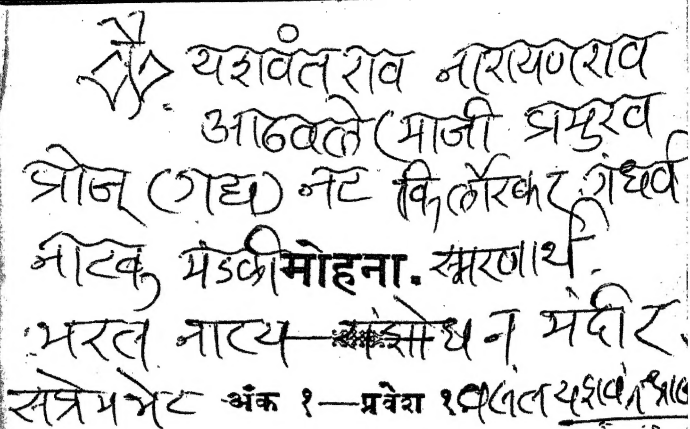 कै. यशवंतराव नारायणराव
आठवले (माजी प्रमुख
प्रोज् (गद्य) नट किर्लोस्कर, गंधर्व
नाटक मंडळी मोहना. स्मरणार्थ.
भरत नाट्य संशोधन मंदीर.
सप्रेम भेट अंक १—प्रवेश १